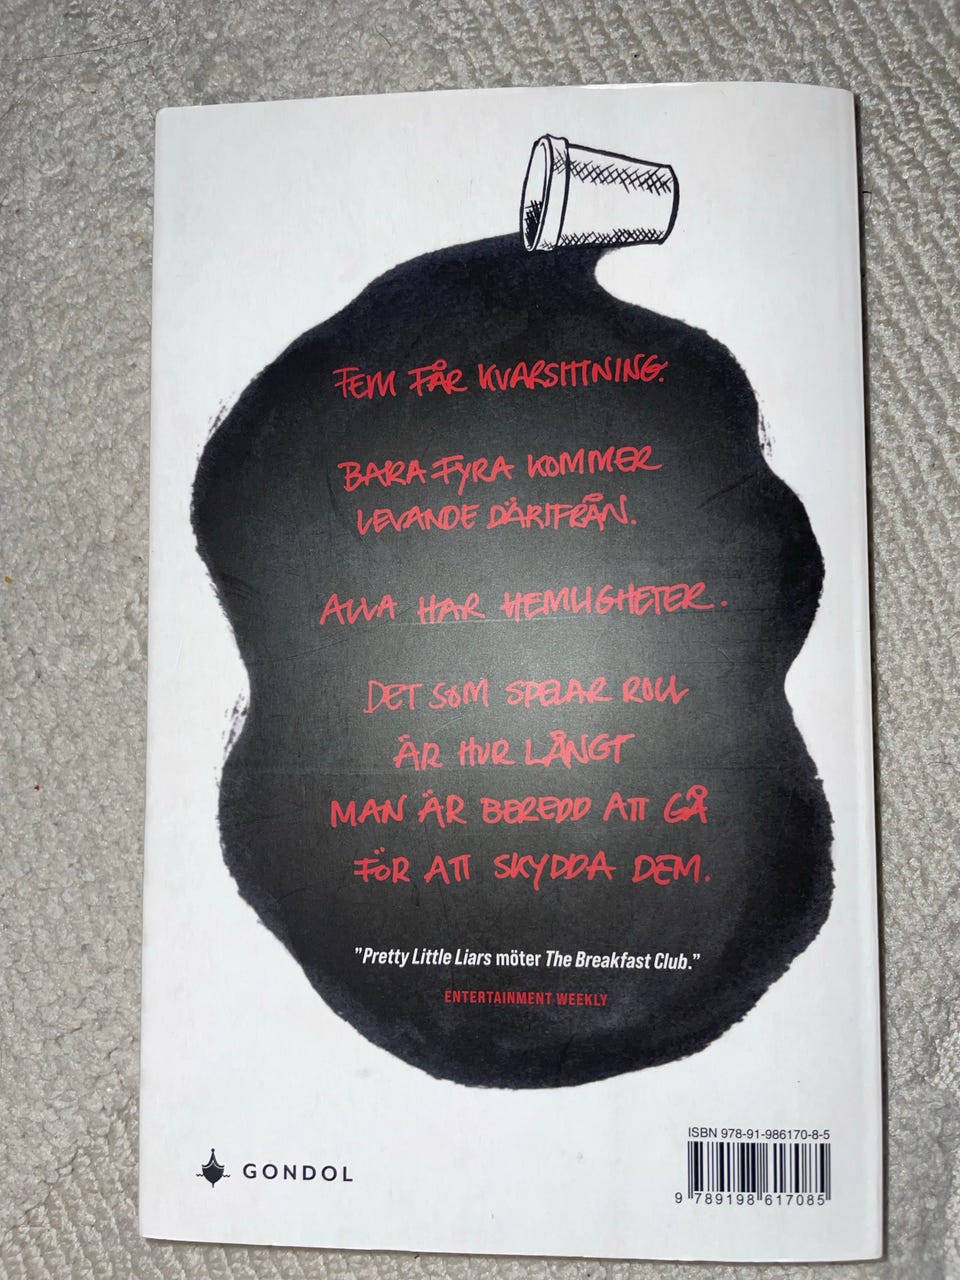 FEM FÅR KVARSITTNING.
BARA FYRA KOMMER
LEVANDE DÄRIFRÅN.
ALLA HAR HEMLIGHETER.
DET SOM SPELAR ROLL
ÄR HUR LÅNGT
MAN ÄR BEREDD ATT GÅ
FÖR ATT SKYDDA DEM.
”Pretty Little Liars möter The Breakfast Club.”
ENTERTAINMENT WEEKLY
ISBN 978-91-986170-8-5
GONDOL
9 789198 617085